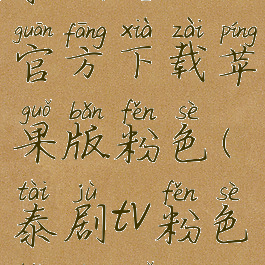 guān fāng xià zài píng
官方下载苹
guǒ bǎn fěn sè
果版粉色(
tài jù fěn sè
泰剧tv粉色